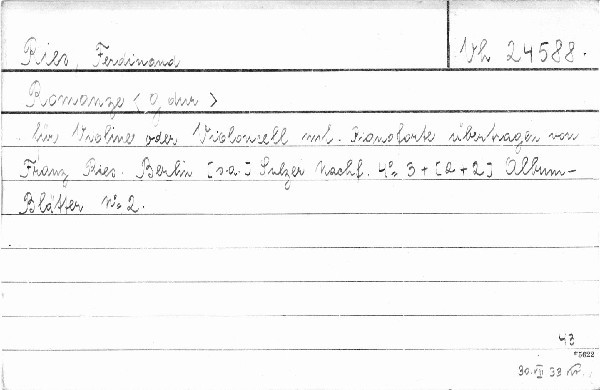 Ries, Ferdinand
Vh 24588.
Romanze <G dur>
für Violine oder Violoncell mit. Pianoforte übertragen von
Franz Ries. Berlin [s.a.] Sulzer Nachf. 4° 3 + [2 + 2] Album-
Blätter No 2.
43
*5622
30. VII 38